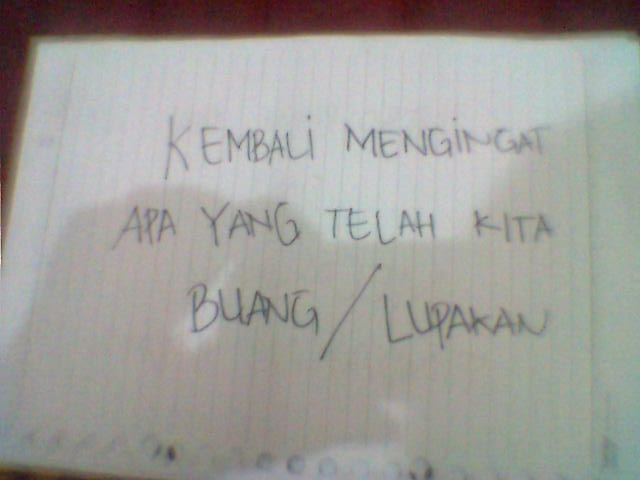 KEMBALi MENGiNGAT
APA YANG TELAH KITA
BUANG / LUPAKAN